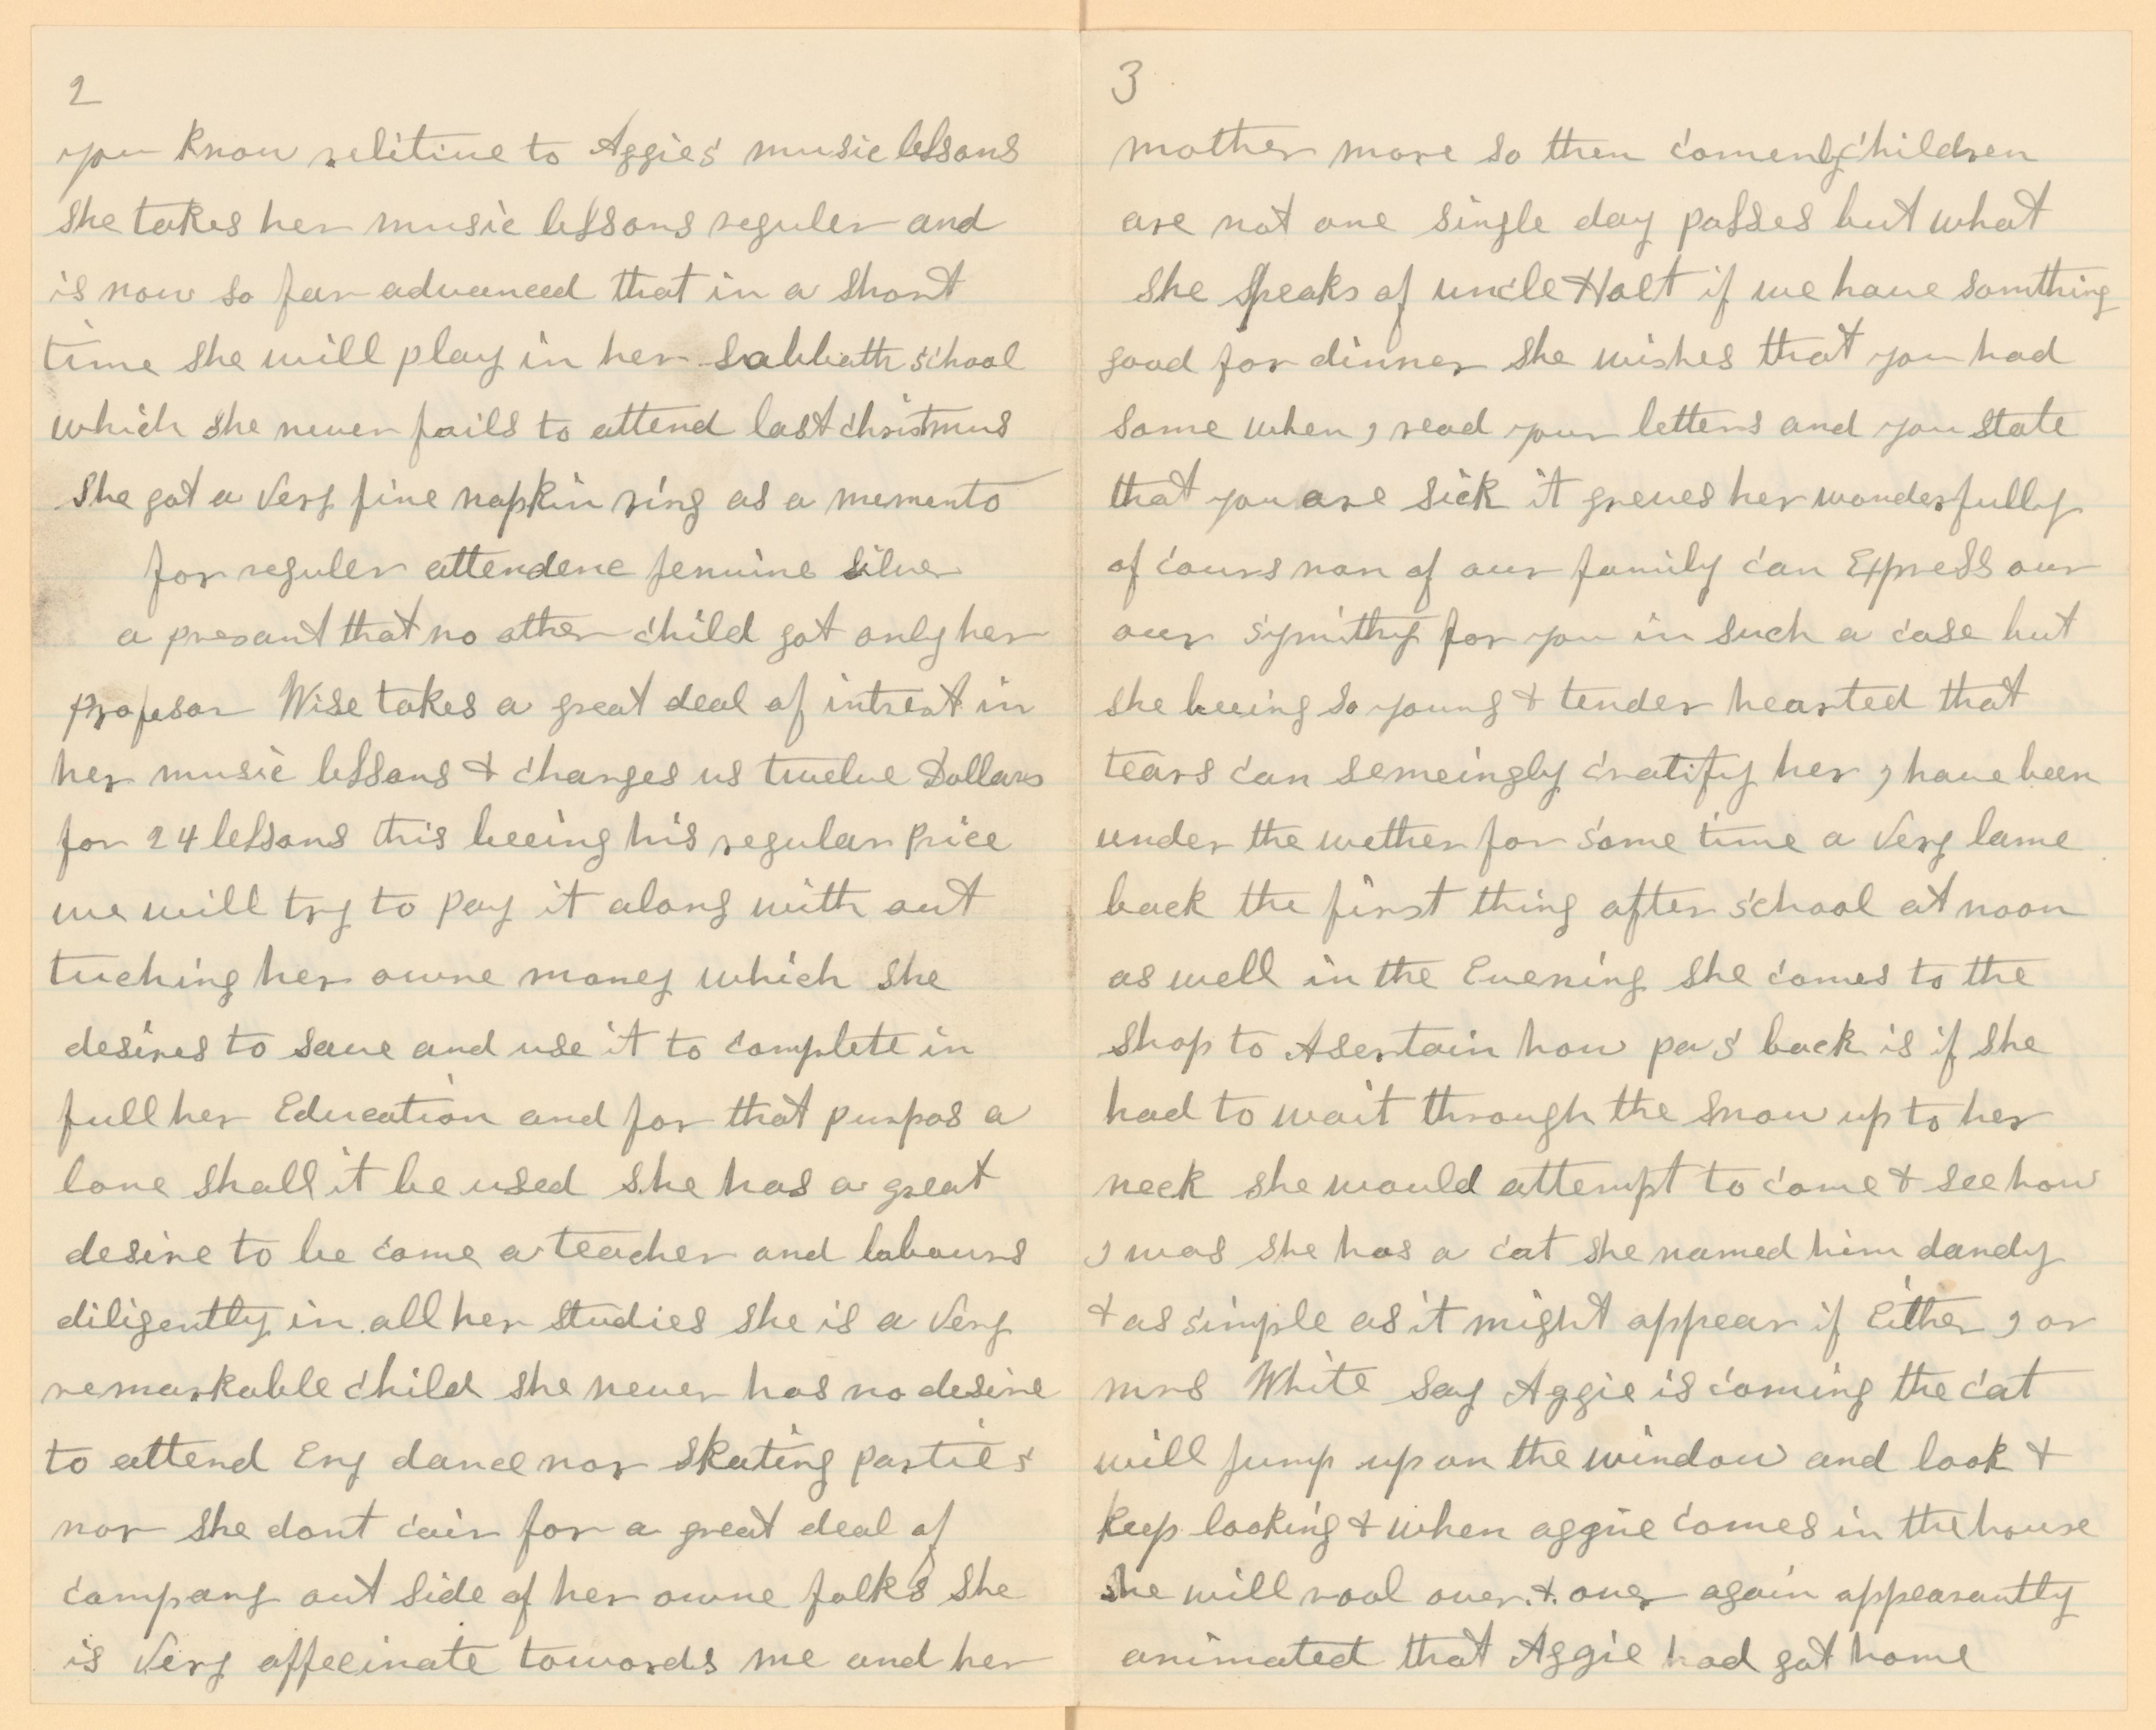 2
you know relitive to Aggie's music lessons
she takes her music lessons reguler and
is now so far advanced that in a short
time she will play in her Sabbath school
which she never fails to attend last christmus
she got a very fine napkin ring as a memento
for reguler attendenc jenuine silver
a presant that no other child got only her
profesor Wise takes a great deal of intrest in
her music lessons & charges us twelve Dollars
for 24 lessons this beeing his regular price
we will try to pay it along with out
tuching her owne money which she
desires to save and use it to complete in
full her Education and for that purpos a
lone shall it be used she has a great
desire to be come a teacher and labours
diligently in all her studies she is a very
remarkable child she never has no desire
to attend Eny dance nor skating parties
nor she dont cair for a great deal of
company out side of her owne folks she
is very affecinate towords me and her
3
mother more so then comenly children
are not one single day passes but what
she speaks of uncle Holt if we have somthing
good for dinner she wishes that you had
some when I read your letters and you state
that you are sick it greves her wonderfully
of cours non of our family can Express our
our symithy for you in such a case but
she beeing so young & tender hearted that
tears can semeingly cratify her I have been
under the wether for some time a very lame
back the first thing after school at noon
as well in the Evening she comes to the
shop to Asertain how pa's back is if she
had to wait through the snow up to her
neck she would attempt to come & see how
I was she has a cat she named him dandy
& as simple as it might appear if Either I or
mrs White say Aggie is coming the cat
will jump up on the window and look &
keep looking & when aggie comes in the house
she will rool over & over again appearantly
animated that Aggie had got home